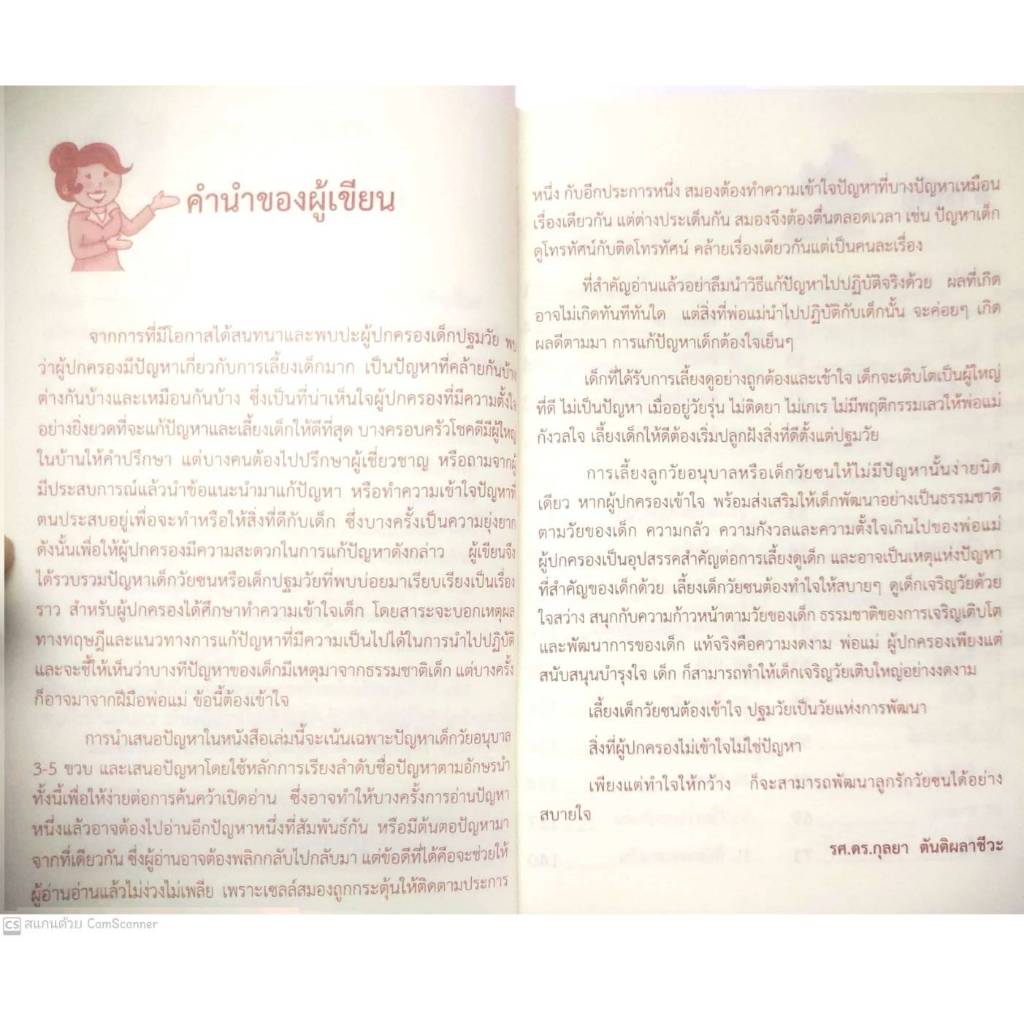 คำนำของผู้เขียน
จากการที่มีโอกาสได้สนทนาและพบปะผู้ปกครองเด็กปฐมวัย พบ
ว่าผู้ปกครองมีปัญหาเกี่ยวกับการเลี้ยงเด็กมาก เป็นปัญหาที่คล้ายกันบ้าง
ต่างกันบ้างและเหมือนกันบ้าง ซึ่งเป็นที่น่าเห็นใจผู้ปกครองที่มีความตั้งใจ
อย่างยิ่งยวดที่จะแก้ปัญหาและเลี้ยงเด็กให้ดีที่สุด บางครอบครัวโชคดีมีผู้ใหญ่
ในบ้านให้คำปรึกษา แต่บางคนต้องไปปรึกษาผู้เชี่ยวชาญ หรือถามจากผู้
มีประสบการณ์แล้วนำข้อแนะนำมาแก้ปัญหา หรือทำความเข้าใจปัญหาที่
ตนประสบอยู่เพื่อจะทำหรือให้สิ่งที่ดีกับเด็ก ซึ่งบางครั้งเป็นความยุ่งยาก
ดังนั้นเพื่อให้ผู้ปกครองมีความสะดวกในการแก้ปัญหาดังกล่าว ผู้เขียนจึง
ได้รวบรวมปัญหาเด็กวัยซนหรือเด็กปฐมวัยที่พบบ่อยมาเรียบเรียงเป็นเรื่อง
ราว สำหรับผู้ปกครองได้ศึกษาทำความเข้าใจเด็ก โดยสาระจะบอกเหตุผล
ทางทฤษฎีและแนวทางการแก้ปัญหาที่มีความเป็นไปได้ในการนำไปปฏิบัติ
และจะชี้ให้เห็นว่าบางทีปัญหาของเด็กมีเหตุมาจากธรรมชาติเด็ก แต่บางครั้ง
ก็อาจมาจากฝีมือพ่อแม่ ข้อนี้ต้องเข้าใจ
การนำเสนอปัญหาในหนังสือเล่มนี้จะเน้นเฉพาะปัญหาเด็กวัยอนุบาล
3-5 ขวบ และเสนอปัญหาโดยใช้หลักการเรียงลำดับชื่อปัญหาตามอักษรนำ
ทั้งนี้เพื่อให้ง่ายต่อการค้นคว้าเปิดอ่าน ซึ่งอาจทำให้บางครั้งการอ่านปัญหา
หนึ่งแล้วอาจต้องไปอ่านอีกปัญหาหนึ่งที่สัมพันธ์กัน หรือมีต้นตอปัญหามา
จากที่เดียวกัน ซึ่งผู้อ่านอาจต้องพลิกกลับไปกลับมา แต่ข้อดีที่ได้คือจะช่วยให้
ผู้อ่านอ่านแล้วไม่ง่วงไม่เพลีย เพราะเซลล์สมองถูกกระตุ้นให้ติดตามประการ
หนึ่ง กับอีกประการหนึ่ง สมองต้องทำความเข้าใจปัญหาที่บางปัญหาเหมือน
เรื่องเดียวกัน แต่ต่างประเด็นกัน สมองจึงต้องตื่นตลอดเวลา เช่น ปัญหาเด็ก
ดูโทรทัศน์กับติดโทรทัศน์ คล้ายเรื่องเดียวกันแต่เป็นคนละเรื่อง
ที่สำคัญอ่านแล้วอย่าลืมนำวิธีแก้ปัญหาไปปฏิบัติจริงด้วย ผลที่เกิด
อาจไม่เกิดทันทีทันใด แต่สิ่งที่พ่อแม่นำไปปฏิบัติกับเด็กนั้น จะค่อยๆ เกิด
ผลดีตามมา การแก้ปัญหาเด็กต้องใจเย็นๆ
เด็กที่ได้รับการเลี้ยงดูอย่างถูกต้องและเข้าใจ เด็กจะเติบโตเป็นผู้ใหญ่
ที่ดี ไม่เป็นปัญหา เมื่ออยู่วัยรุ่น ไม่ติดยา ไม่เกเร ไม่มีพฤติกรรมเลวให้พ่อแม่
กังวลใจ เลี้ยงเด็กให้ดีต้องเริ่มปลูกฝังสิ่งที่ดีตั้งแต่ปฐมวัย
การเลี้ยงลูกวัยอนุบาลหรือเด็กวัยซนให้ไม่มีปัญหานั้นง่ายนิด
เดียว หากผู้ปกครองเข้าใจ พร้อมส่งเสริมให้เด็กพัฒนาอย่างเป็นธรรมชาติ
ตามวัยของเด็ก ความกลัว ความกังวลและความตั้งใจเกินไปของพ่อแม่
ผู้ปกครองเป็นอุปสรรคสำคัญต่อการเลี้ยงดูเด็ก และอาจเป็นเหตุแห่งปัญหา
ที่สำคัญของเด็กด้วย เลี้ยงเด็กวัยซนต้องทำใจให้สบายๆ ดูเด็กเจริญวัยด้วย
ใจสว่าง สนุกกับความก้าวหน้าตามวัยของเด็ก ธรรมชาติของการเจริญเติบโต
และพัฒนาการของเด็ก แท้จริงคือความงดงาม พ่อแม่ ผู้ปกครองเพียงแต่
สนับสนุนบำรุงใจ เด็ก ก็สามารถทำให้เด็กเจริญวัยเติบใหญ่อย่างงดงาม
เลี้ยงเด็กวัยซนต้องเข้าใจ ปฐมวัยเป็นวัยแห่งการพัฒนา
สิ่งที่ผู้ปกครองไม่เข้าใจไม่ใช่ปัญหา
เพียงแต่ทำใจให้กว้าง ก็จะสามารถพัฒนาลูกรักวัยซนได้อย่าง
สบายใจ
รศ.ดร.กุลยา ตันติผลาชีวะ
CS สแกนด้วย CamScanner